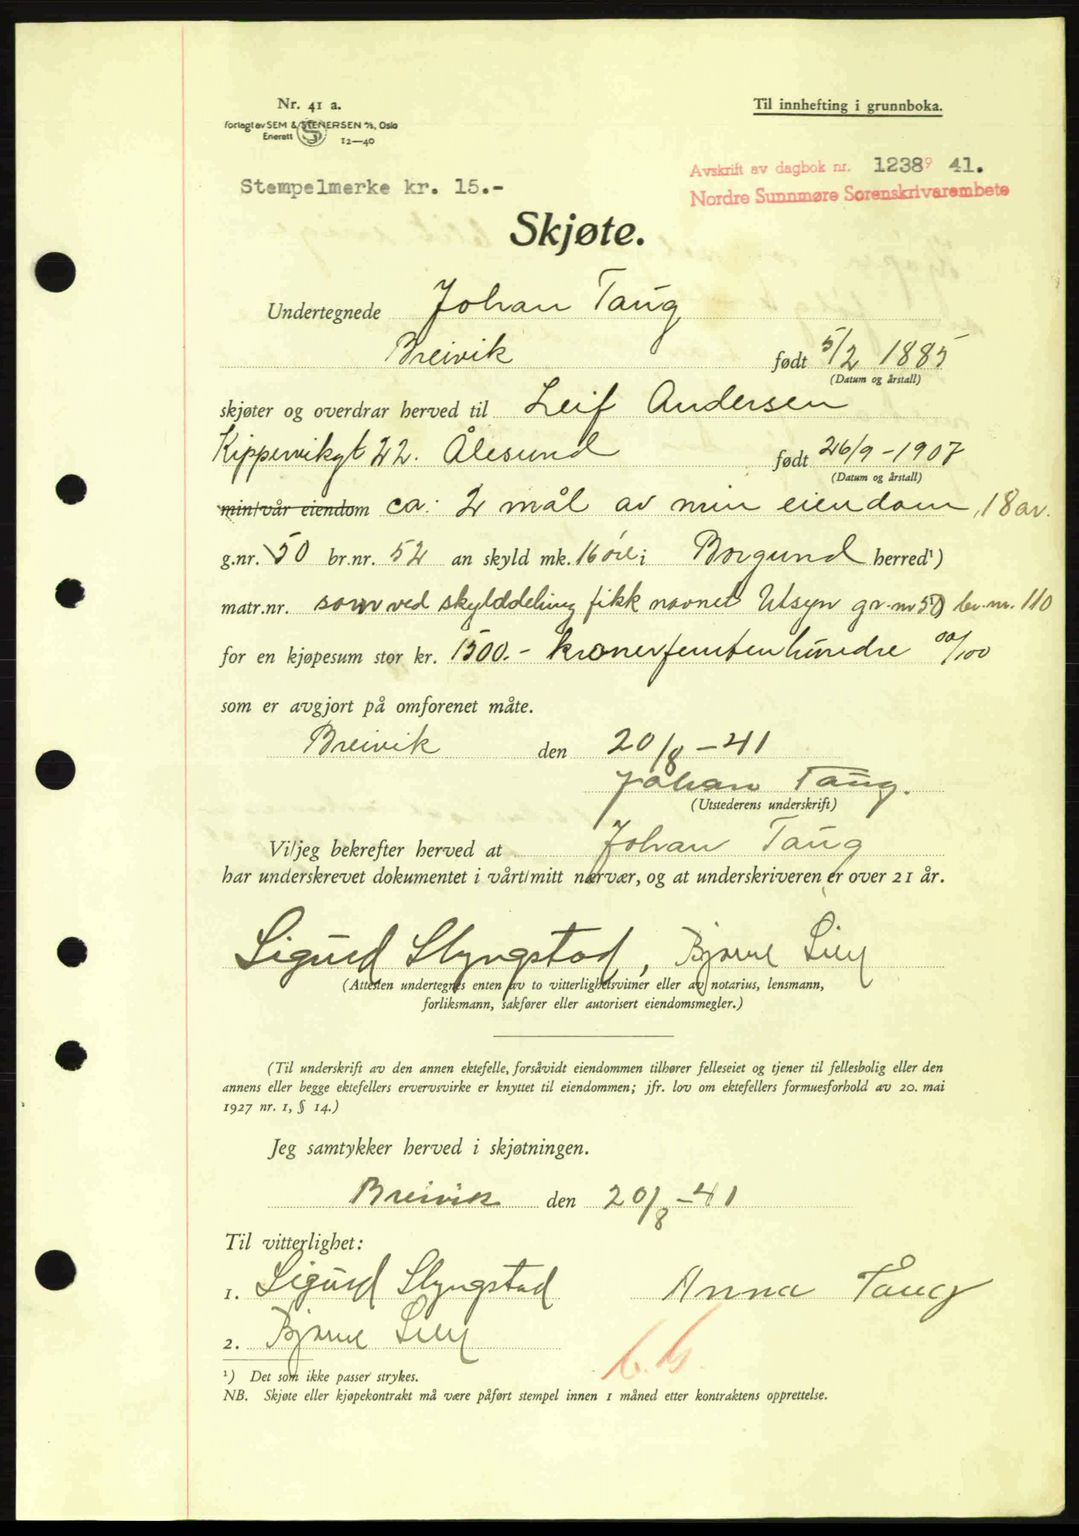 Nr. 41 a.
Forlagt av SEM & STENERSEN A/S, Oslo
Enerett 12—40
Til innhefting i grunnboka.
Stempelmerke kr. 15.-
Avskrift av dagbok nr. 1238⁹ 41.
Nordre Sunnmøre Sorenskrivarembete
Skjøte.
Undertegnede Johan Taug
Breivik født 5/2 1885
(Datum og årstall)
skjøter og overdrar herved til Leif Andersen
Kippervikgt 22. Ålesund født 26/9-1907
(Datum og årstall)
min/vår eiendom ca. 2 mål av min eiendom, 18 av.
g.nr. 50 br.nr. 52 an skyld mk. 16 øre i Borgund herred¹)
matr.nr. som ved skylddeling fikk navnet Utsyn gr.nr 50 br.nr. 110
for en kjøpesum stor kr. 1500.- kronerfemtenhundre 00/100
som er avgjort på omforenet måte.
Breivik den 20/8-41
Johan Taug.
(Utstederens underskrift)
Vi/jeg bekrefter herved at Johan Taug
har underskrevet dokumentet i vårt/mitt nærvær, og at underskriveren er over 21 år.
Sigurd Slyngstad, Bjarne
(Attesten undertegnes enten av to vitterlighetsvitner eller av notarius, lensmann,
forliksmann, sakfører eller autorisert eiendomsmegler.)
(Til underskrift av den annen ektefelle, forsåvidt eiendommen tilhører felleseiet og tjener til fellesbolig eller den
annens eller begge ektefellers ervervsvirke er knyttet til eiendommen; jfr. lov om ektefellers formuesforhold av 20. mai
1927 nr. 1, § 14.)
Jeg samtykker herved i skjøtningen.
Breivik den 20/8-41
Til vitterlighet:
1. Sigurd Slyngstad Anna Taug
2. Bjarne
¹) Det som ikke passer strykes.
NB. Skjøte eller kjøpekontrakt må være påført stempel innen 1 måned etter kontraktens opprettelse.